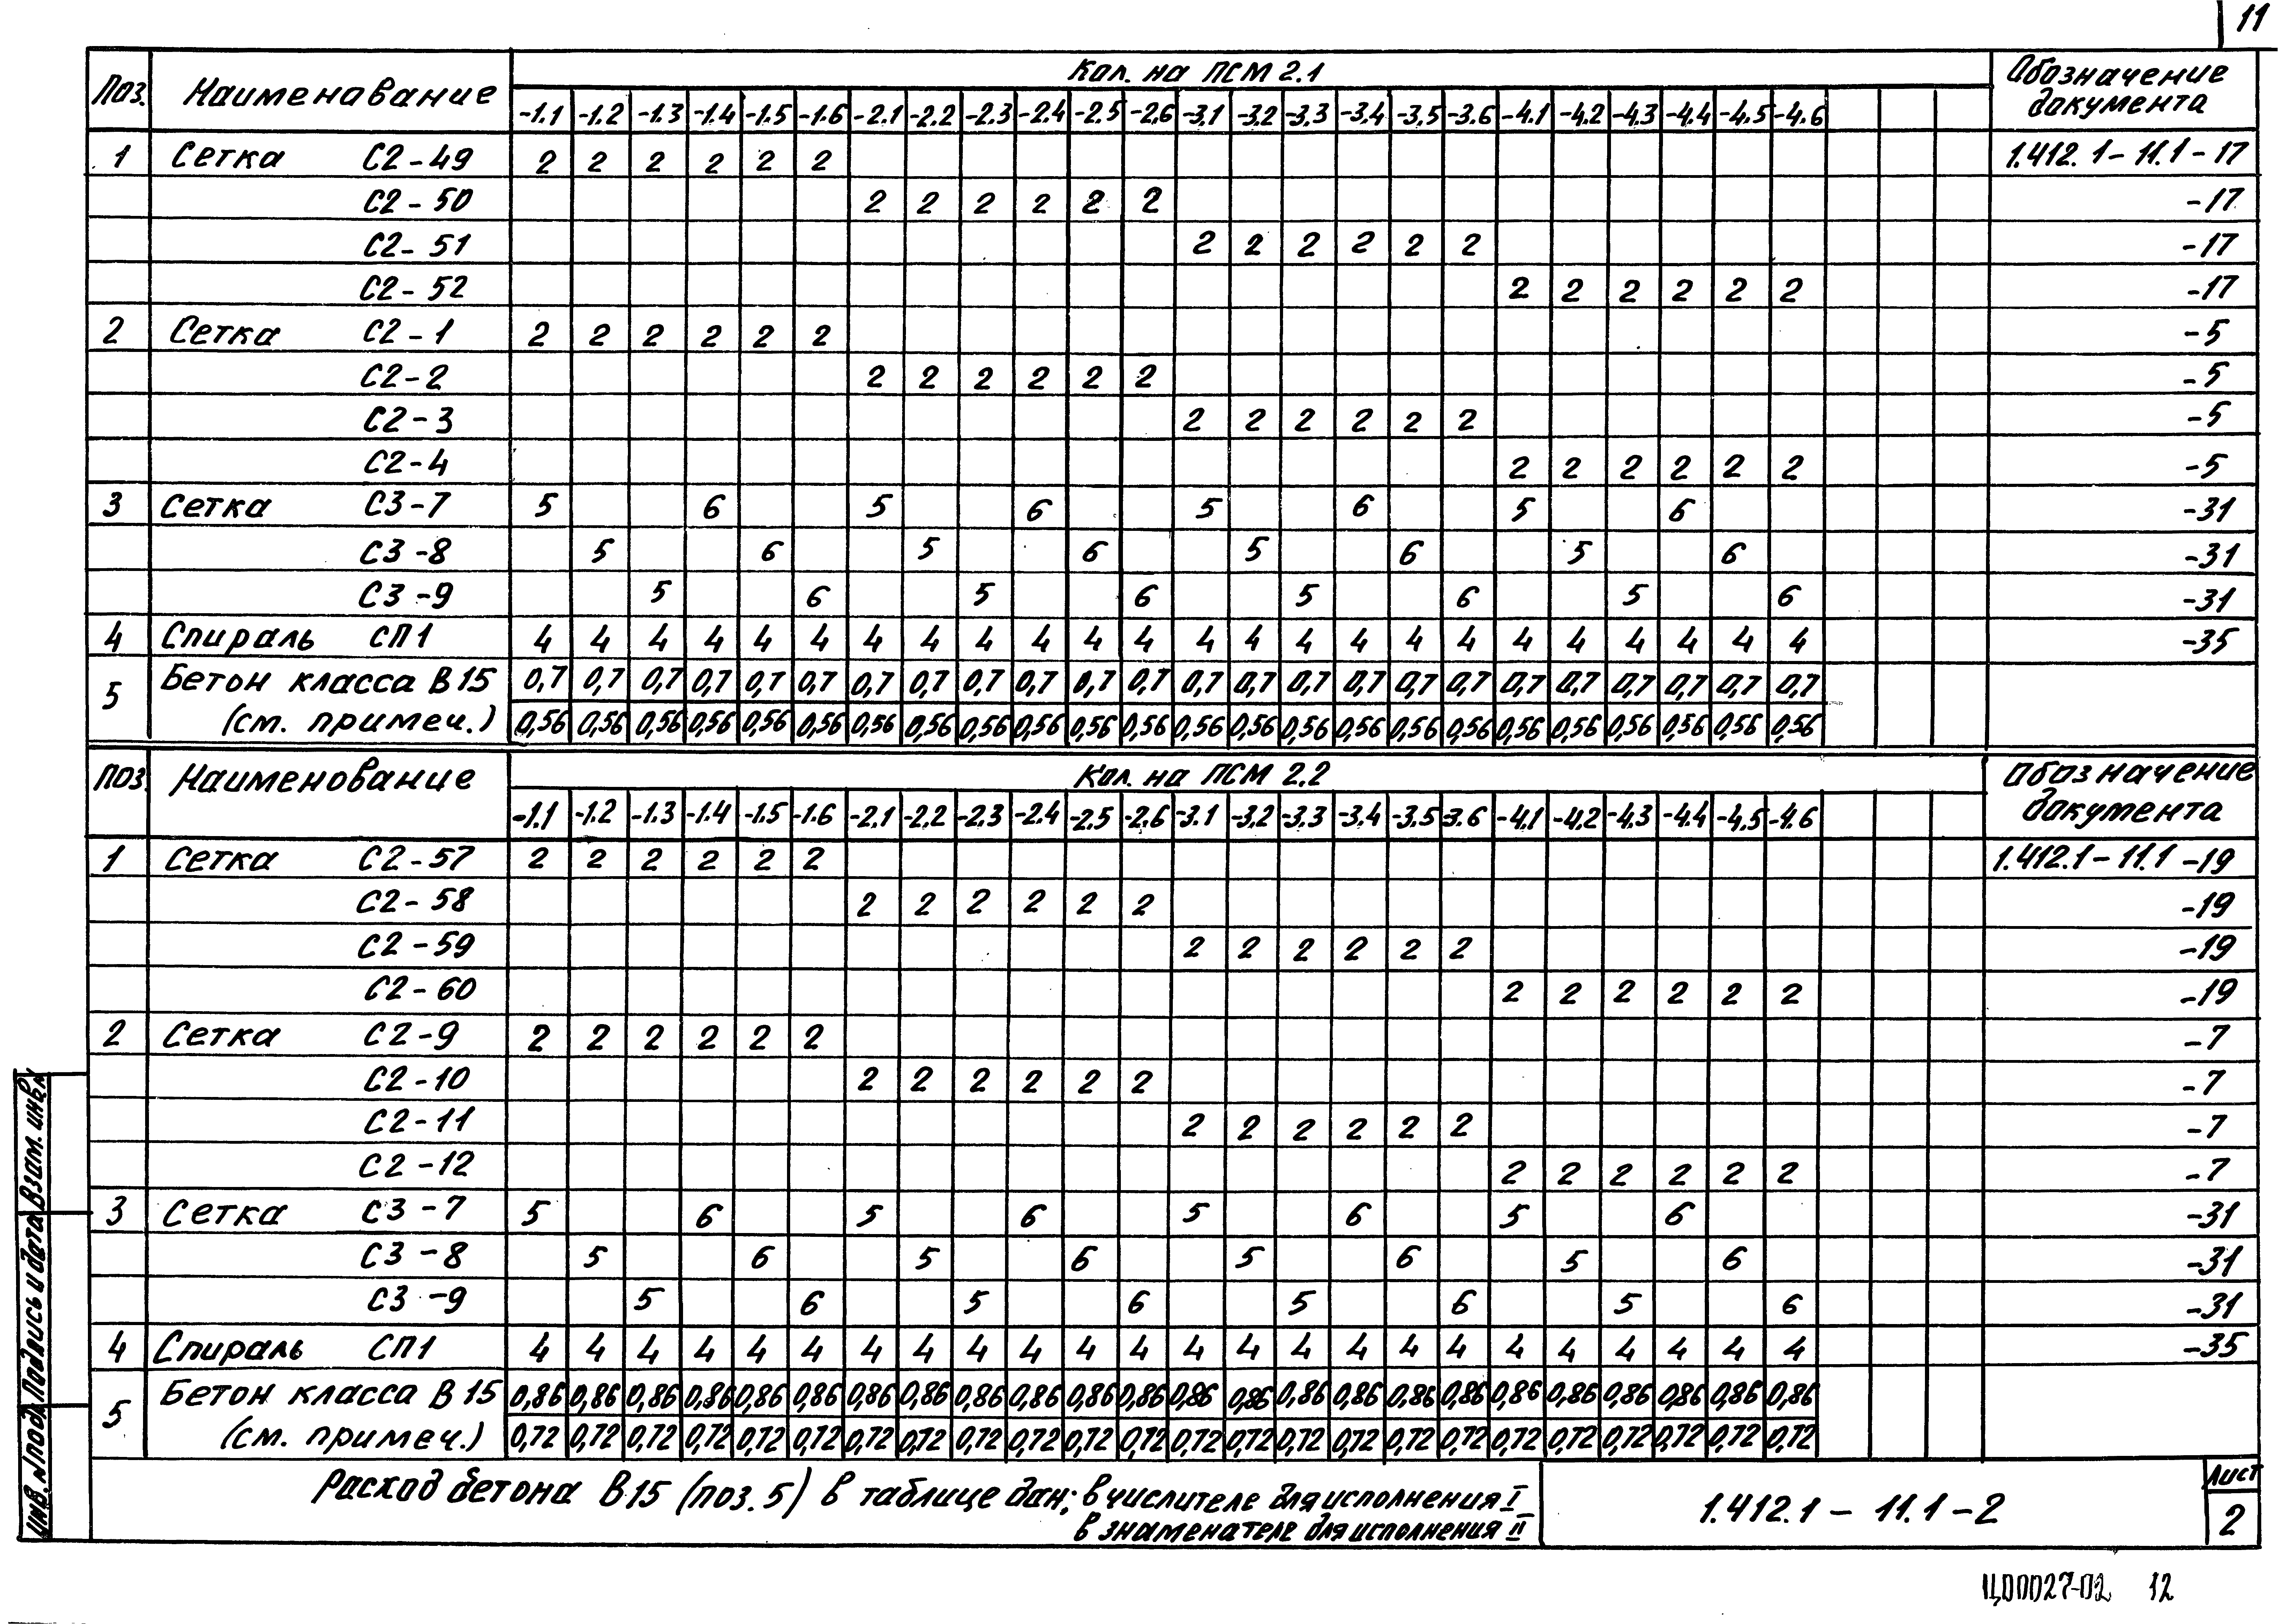 11
Поз. Наименование Кол. на ПСМ 2.1 Обозначение документа
-1.1 -1.2 -1.3 -1.4 -1.5 -1.6 -2.1 -2.2 -2.3 -2.4 -2.5 -2.6 -3.1 -3.2 -3.3 -3.4 -3.5 -3.6 -4.1 -4.2 -4.3 -4.4 -4.5 -4.6
1 Сетка С2-49 2 2 2 2 2 2 1.412.1-11.1-17
С2-50 2 2 2 2 2 2 -17
С2-51 2 2 2 2 2 2 -17
С2-52 2 2 2 2 2 2 -17
2 Сетка С2-1 2 2 2 2 2 2 -5
С2-2 2 2 2 2 2 2 -5
С2-3 2 2 2 2 2 2 -5
С2-4 2 2 2 2 2 2 -5
3 Сетка С3-7 5 6 5 6 5 6 5 6 -31
С3-8 5 6 5 6 5 6 5 6 -31
С3-9 5 6 5 6 5 6 5 6 -31
4 Спираль СП1 4 4 4 4 4 4 4 4 4 4 4 4 4 4 4 4 4 4 4 4 4 4 4 4 -35
5 Бетон класса В15 0,7 0,7 0,7 0,7 0,7 0,7 0,7 0,7 0,7 0,7 0,7 0,7 0,7 0,7 0,7 0,7 0,7 0,7 0,7 0,7 0,7 0,7 0,7 0,7
(см. примеч.) 0,56 0,56 0,56 0,56 0,56 0,56 0,56 0,56 0,56 0,56 0,56 0,56 0,56 0,56 0,56 0,56 0,56 0,56 0,56 0,56 0,56 0,56 0,56 0,56
Поз. Наименование Кол. на ПСМ 2.2 Обозначение документа
-1.1 -1.2 -1.3 -1.4 -1.5 -1.6 -2.1 -2.2 -2.3 -2.4 -2.5 -2.6 -3.1 -3.2 -3.3 -3.4 -3.5 -3.6 -4.1 -4.2 -4.3 -4.4 -4.5 -4.6
1 Сетка С2-57 2 2 2 2 2 2 1.412.1-11.1-19
С2-58 2 2 2 2 2 2 -19
С2-59 2 2 2 2 2 2 -19
С2-60 2 2 2 2 2 2 -19
2 Сетка С2-9 2 2 2 2 2 2 -7
С2-10 2 2 2 2 2 2 -7
С2-11 2 2 2 2 2 2 -7
С2-12 2 2 2 2 2 2 -7
3 Сетка С3-7 5 6 5 6 5 6 5 6 -31
С3-8 5 6 5 6 5 6 5 6 -31
С3-9 5 6 5 6 5 6 5 6 -31
4 Спираль СП1 4 4 4 4 4 4 4 4 4 4 4 4 4 4 4 4 4 4 4 4 4 4 4 4 -35
5 Бетон класса В15 0,86 0,86 0,86 0,86 0,86 0,86 0,86 0,86 0,86 0,86 0,86 0,86 0,86 0,86 0,86 0,86 0,86 0,86 0,86 0,86 0,86 0,86 0,86 0,86
(см. примеч.) 0,72 0,72 0,72 0,72 0,72 0,72 0,72 0,72 0,72 0,72 0,72 0,72 0,72 0,72 0,72 0,72 0,72 0,72 0,72 0,72 0,72 0,72 0,72 0,72
Расход бетона В15 (поз.5) в таблице дан; в числителе для исполнения I
в знаменателе для исполнения II
1.412.1-11.1-2
Лист
2
Инв. № подл. Подпись и дата Взам. инв. №
Ц00027-02 12